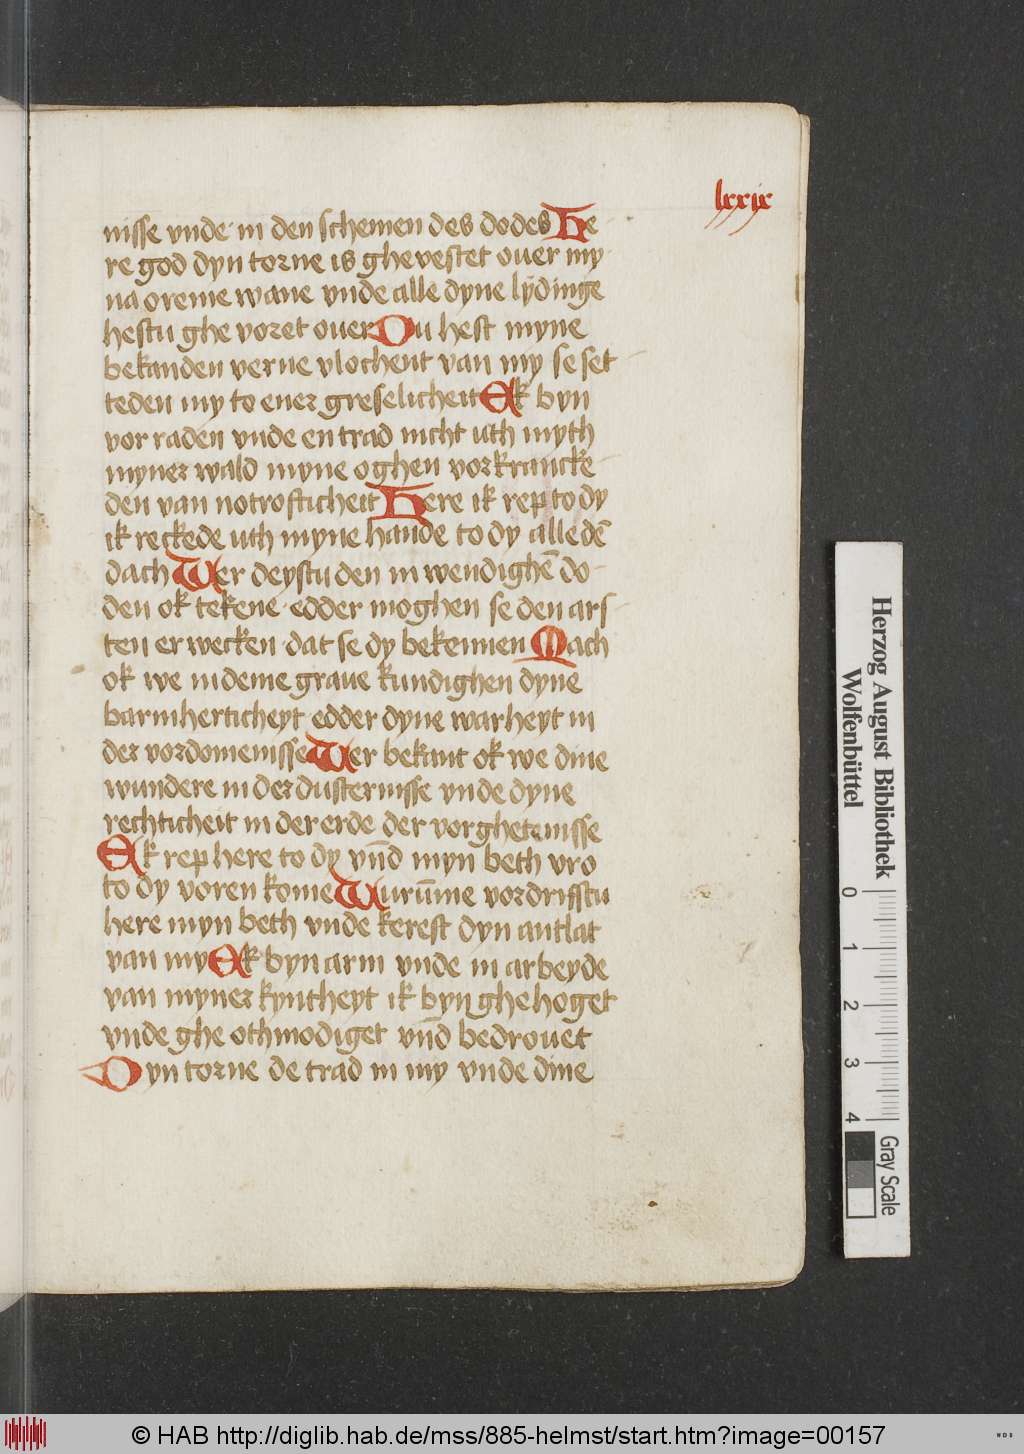 lxxix
nisse vnde in den schemen des dodes He
re god dyn torne is ghevestet over my
na oreme wane vnde alle dyne lydinge
hestu ghe voret over Du hest myne
bekanden verne vlochent van my se set
teden my to ener greselicheit Ek byn
vor raden vnde en trad nicht uth myth
myner wald myne oghen vorkrancke
den van notrofticheit Here ik rep to dy
ik reckede uth myne hande to dy alle dē
dach Wer deystu den in wendighē do
den ok tekene edder moghen se den ars
ten er wecken dat se dy bekennen Mach
ok we in deme grave kundighen dyne
barmherticheyt edder dyne warheyt in
der vordomenisse Wer bekant ok we dine
wundere in der dusternisse vnde dyne
rechticheit in der erde der vorghetenisse
Ek rep here to dy vn̄d myn beth vro
to dy voren kome Wurūme vordrifstu
here myn beth vnde kerest dyn antlat
van my Ek byn arm vnde in arbeyde
van myner kyntheyt ik byn ghe hoget
vnde ghe othmodiget vn̄d bedrovet
Dyn torne de trad in my vnde dine
Herzog August Bibliothek
Wolfenbüttel
0 1 2 3 4
Gray Scale
© HAB http://diglib.hab.de/mss/885-helmst/start.htm?image=00157